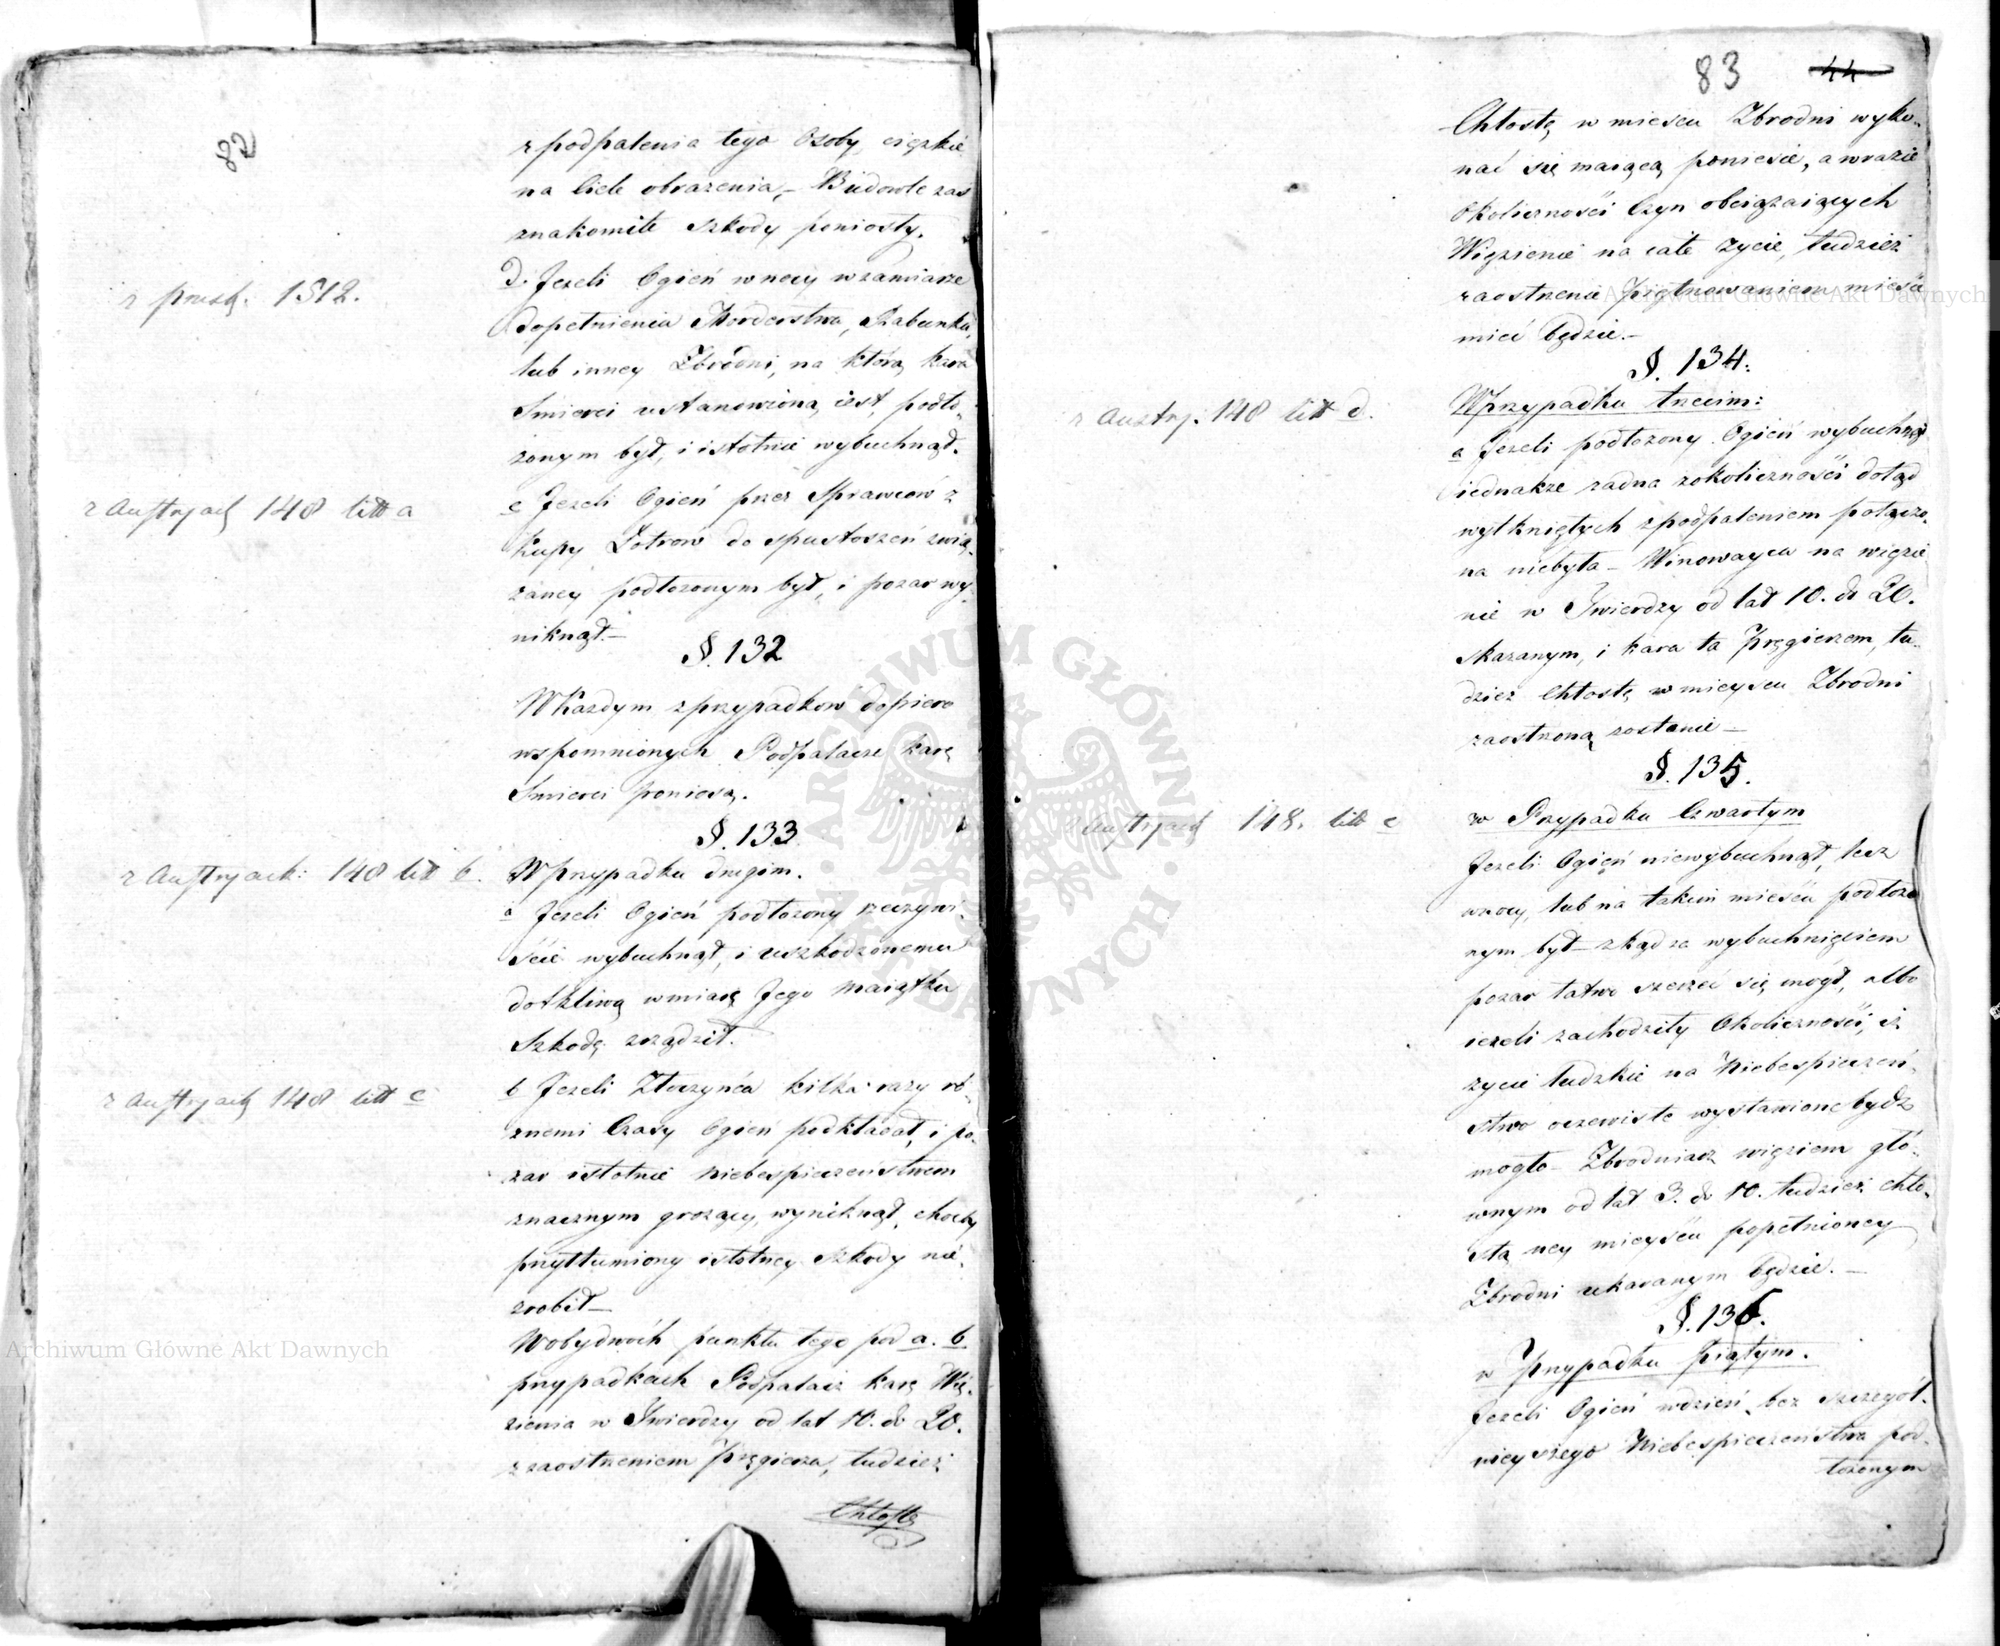 82
z podpalenia tego Osoby ciężkie
na Ciele obrażenia, – Budowle zaś
znakomite szkody poniosły.
z prusk: 1512.
d. Jeżeli Ogień w nocy w zamiarze
dopełnienia Morderstwa, Rabunku,
lub inney Zbrodni, na którą kara
Śmierci ustanowioną iest, podło-
żonym był, i istotnie wybuchnął.
z Austryack 148 litt a
e Jeżeli Ogień przez Sprawców z
kupy Łotrow do spustoszeń zwią-
zaney podłożonym był, i pożar wy-
niknął. –
§. 132
W Każdym z przypadkow dopiero
wspomnionych Podpalacze karę
Śmierci poniosą.
§. 133
z Austryack: 148 litt b.
W Przypadku drugim.
a Jeżeli Ogień podłożony rzeczywi-
ście wybuchnął, i uszkodzonemu
dotkliwą w miarę Jego Maiątku
Szkodę zrządził.
z Austryack 148 litt c
b Jeżeli Złoczyńca kilka razy ró-
żnemi Czasy Ogień podkładał, i po-
żar istotnie Niebespieczeństwem
znacznym grożący, wyniknął, choćby
przytłumiony istotney szkody nie
zrobił –
W obydwóch punktu tego pod a. b
przypadkach Podpalacz karę Wię-
zienia w Twierdzy od lat 10. do 20.
z zaostrzeniem Pręgierza, tudzież
Chłostę
83
44
Chłostę w miescu Zbrodni wyko-
nać się maiącą poniesie, a w razie
Okoliczności Czyn obciążaiących
Więzienie na całe życie, tudzież
zaostrzenie Piętnowaniem miesce
mieć będzie. –
§. 134.
z Austry: 148 litt d.
W przypadku trzecim:
a Jeżeli podłożony Ogień wybuchnął
iednakże żadna z okoliczności dotąd
wytkniętych z podpaleniem połączo-
na niebyła – Winowayca na więzie
nie w Twierdzy od lat 10. do 20.
skazanym, i kara ta Pręgierzem, tu-
dzież Chłostą w mieyscu Zbrodni
zaostrzoną zostanie –
§. 135.
z Austryack 148. litt e
w Przypadku Czwartym
Jeżeli Ogień niewybuchnął, lecz
w nocy, lub na takim miescu podłożo
nym był – zkąd za wybuchnięciem
pożar łatwo szerzeć się mógł, albo
ieżeli zachodziły Okoliczności, iż
życie ludzkie na Niebespieczeń-
stwo oczewiste wystawione bydź
mogło – Zbrodniarz więziem głó-
wnym od lat 3. do 10. tudzież chło-
stą w mieyscu popełnioney
Zbrodni ukaranym będzie. –
§. 136.
w Przypadku piątym.
Jeżeli Ogień w dzień, bez szczegól-
nieyszego Niebespieczeństwa pod-
łożonym
Archiwum Główne Akt Dawnych
Archiwum Główne Akt Dawnych
ARCHIWUM GŁÓWNE AKT DAWNYCH